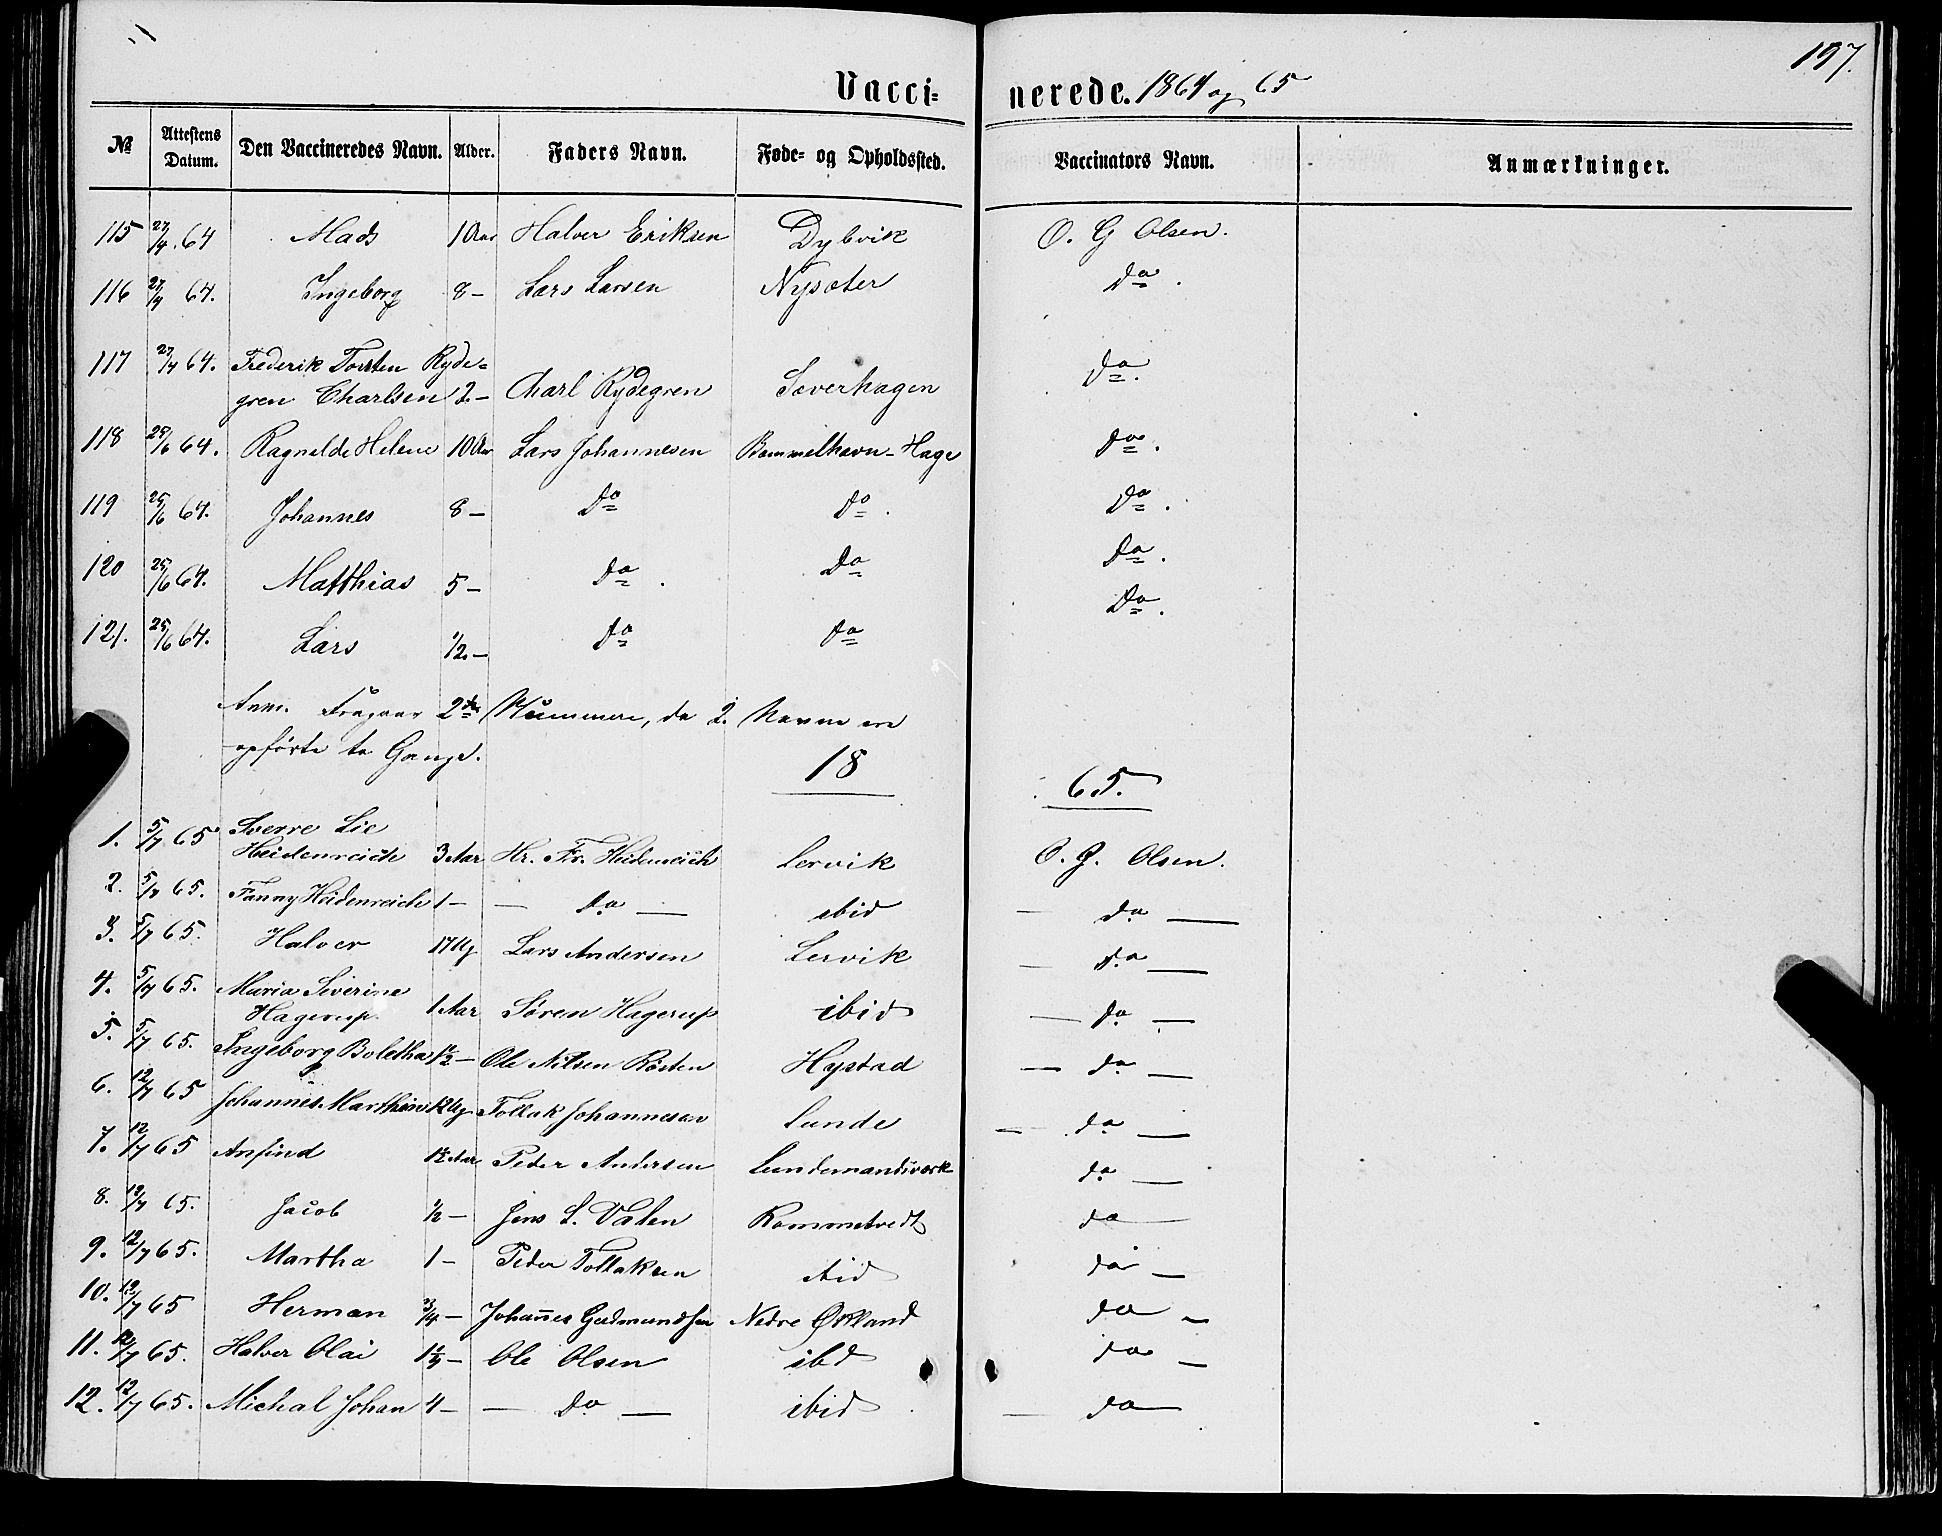 197.
Vacci= nerede. 1864 og 65
№ Attestens Datum. Den Vaccineredes Navn. Alder. Faders Navn. Føde- og Opholdssted. Vaccinators Navn. Anmærkninger.
115 27/4 . 64 Mads 1 Aar Halver Eriksen Dybvik O. G Olsen.
116 27/4 64. Ingeborg 8 — Lars Larsen Nysæter do .
117 27/4 64. Frederik Torsten Ryde=
gren Charlsen 2. — Charl Rydegren Sæverhagen do .
118 25/6 64. Ragnilde Helene 10 Aar Lars Johannesen Bommelhavn - Hage do .
119 25/6 64. Johannes 8 — do do . do .
120 25/6 64. Matthias 5 — do . do do .
121. 25/6 64. Lars 1/2. — do do do .
Anm. Fragaar 2de Nummere, da 2. Navne ere
opførte to Gange.
18 65.
1. 5/7 65 Sverre Lie
Heidenreich 3 Aar Hr. Fr. Heidenreich Lervik O. G. Olsen.
2. 5/7 65. Fanny Heidenreich 1 — — do — ibid — do —
3. 5/7 65. Halver 17 Ug Lars Andersen Lervik — do —
4. 5/7 65. Maria Siverine
Hagerup. 1 Aar Sören Hagerup ibid — do —
5. 5/7 65. Ingeborg Boletha 1 1/2 — Ole Nilsen Rösten Hystad — do —
6. 12/7 65 Johannes Marthin 12 Ug Tollak Johannesen Lunde — do —
7. 12/7 65 Anfind 1 1/2 Aar Peder Andersen Lundemandsværk do —
8. 12/7 65. Jacob 1/2 — Jens L. Valen Rommetvedt do —
9. 12/7 65. Martha 1 — Peder Tollaksen ibid do —
10. 12/7 65 Herman 3/4 — Johanes Gudmundsen Nedre Økland do —
11. 12/7 65. Halver Olai 1 1/2 — Ole Olsen ibd do —
12. 12/7 65. Michal Johan 4 — — do — ibid — do —